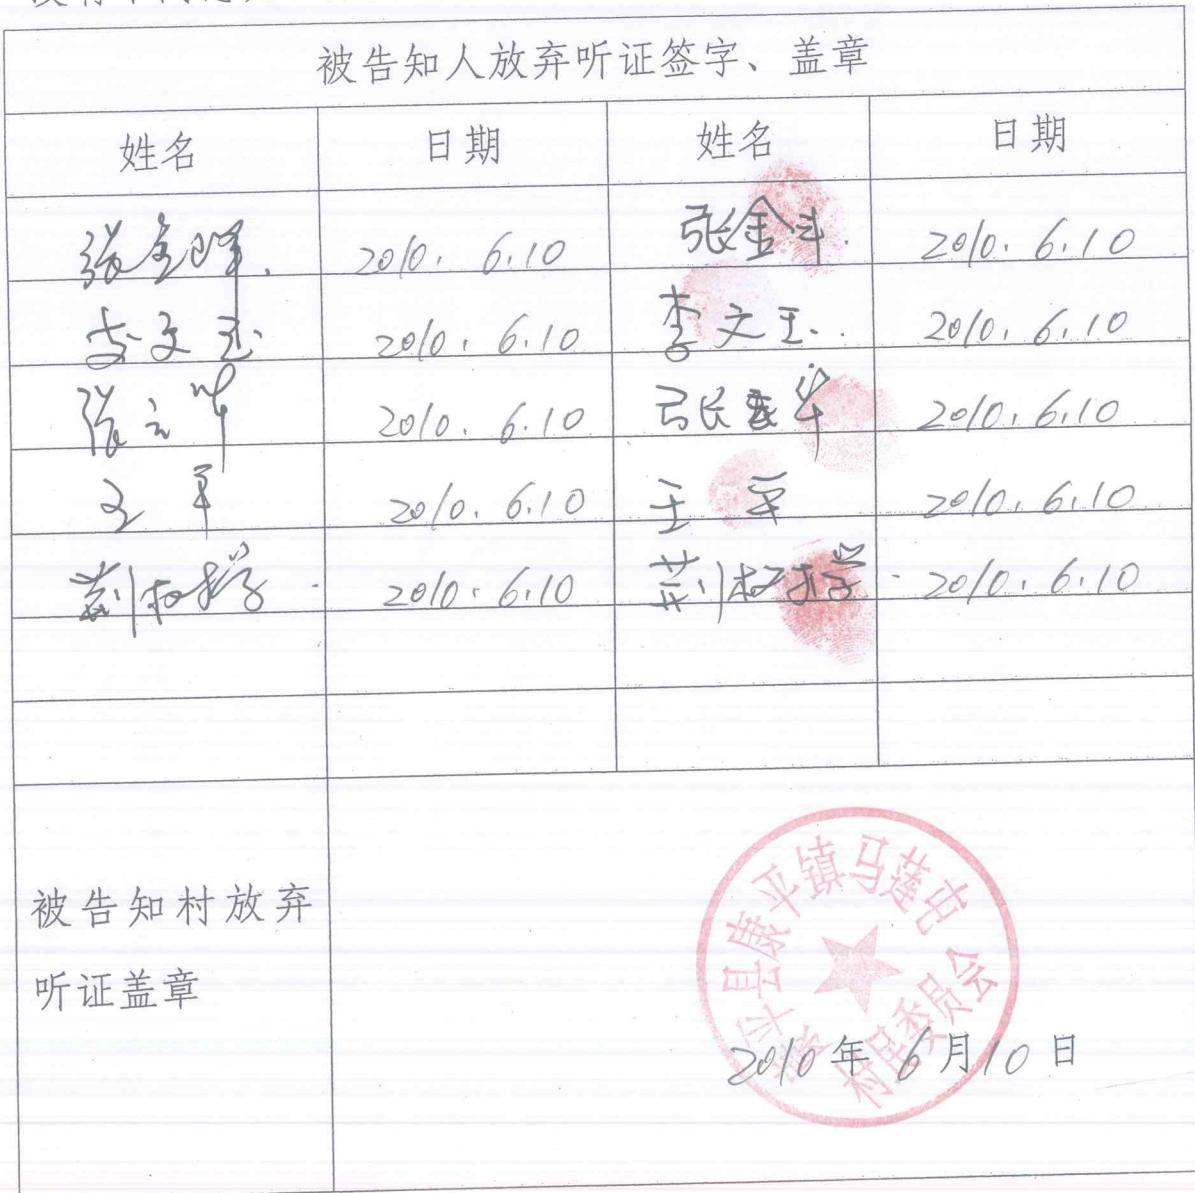 被告知人放弃听证签字、盖章
姓名 日期 姓名 日期
2010. 6.10 张金斗. 2010. 6.10
李文玉 2010. 6.10 李文玉. 2010. 6.10
2010. 6.10 2010. 6.10
王平 2010. 6.10 王平 2010. 6.10
2010. 6.10 2010. 6.10
被告知村放弃
听证盖章
康平县康平镇马莲屯
村民委员会
2010年6月10日